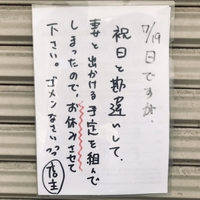 7/19日ですが、
祝日と勘違いして、
妻と出かける予定を組んで
しまったので、お休みさせて
下さい。ゴメンなさいっっ
店主